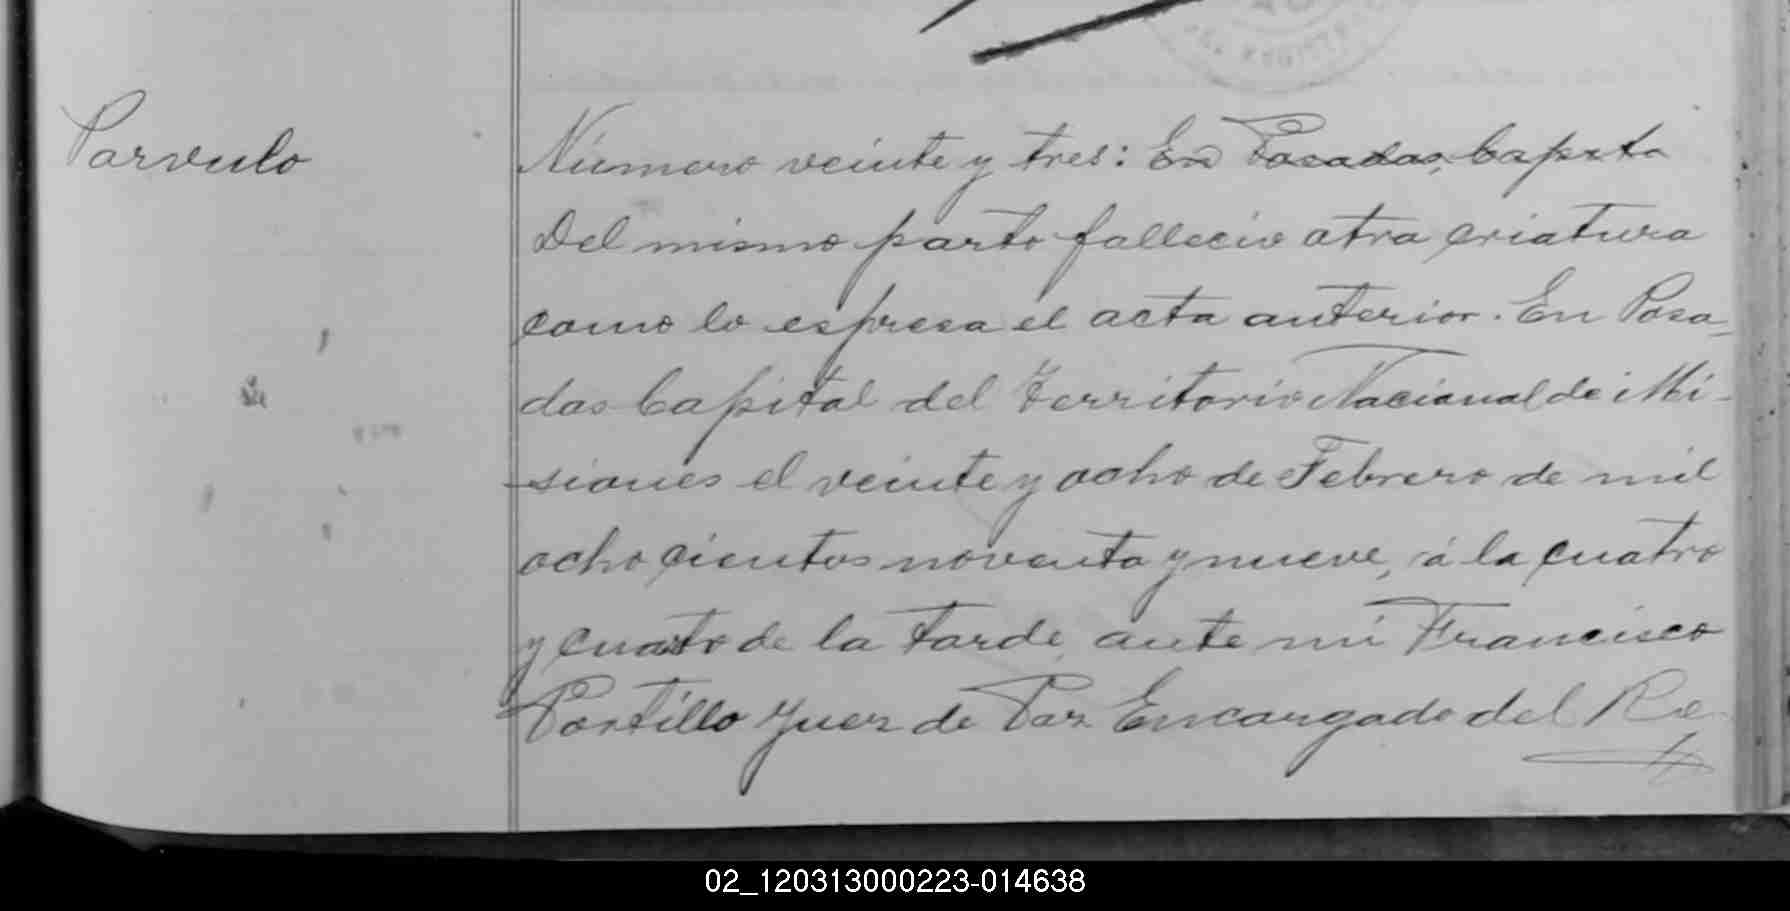 Parvulo
Número veinte y tres: En Posadas, Capita
Del mismo parto fallecio otra criatura
como lo espresa el acta anterior. En Posa_
das Capital del Territorio Nacional de Mi-
siones el veinte y ocho de Febrero de mil
ocho cientos noventa y nueve, á la cuatro
y cuarto de la tarde, ante mi Francisco
Portillo Juez de Paz Encargado del Re
02_120313000223-014638